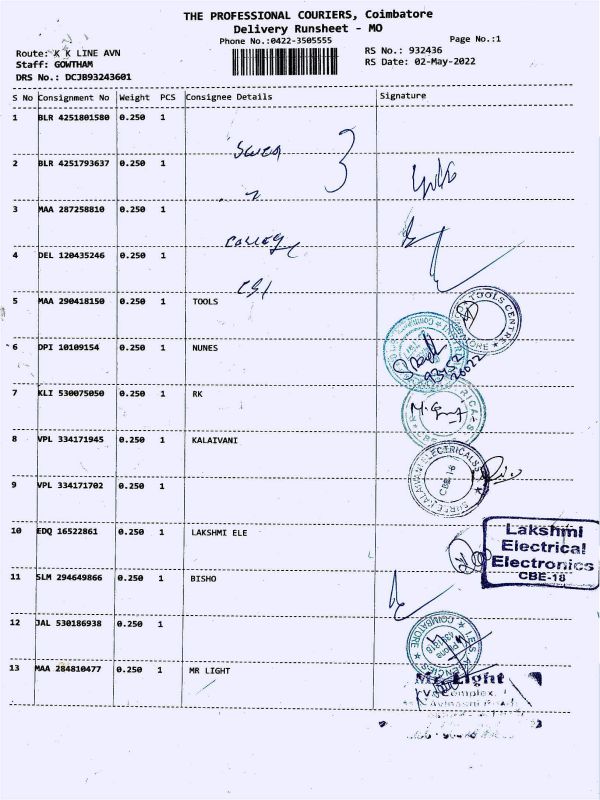 THE PROFESSIONAL COURIERS, Coimbatore
Delivery Runsheet - MO
Phone No.:0422-3505555 Page No.:1
Route: K K LINE AVN RS No.: 932436
Staff: GOWTHAM RS Date: 02-May-2022
DRS No.: DCJB93243601
S No Consignment No Weight PCS Consignee Details Signature
1 BLR 4251801580 0.250 1
2 BLR 4251793637 0.250 1
3 MAA 287258810 0.250 1
COLLEGE
4 DEL 120435246 0.250 1
CSI
5 MAA 290418150 0.250 1 TOOLS
TOOLS CENTRE
6 DPI 10109154 0.250 1 NUNES
7 KLI 530075050 0.250 1 RK
8 VPL 334171945 0.250 1 KALAIVANI
SHREE KALAIVANI ELECTRICALS
CBE-18
9 VPL 334171702 0.250 1
10 EDQ 16522861 0.250 1 LAKSHMI ELE
Lakshmi
Electrical
Electronics
CBE-18
11 SLM 294649866 0.250 1 BISHO
12 JAL 530186938 0.250 1
COIMBATORE
Phone
AGENCIES
13 MAA 284810477 0.250 1 MR LIGHT
Mr. Light
Complex
Avinashi Road